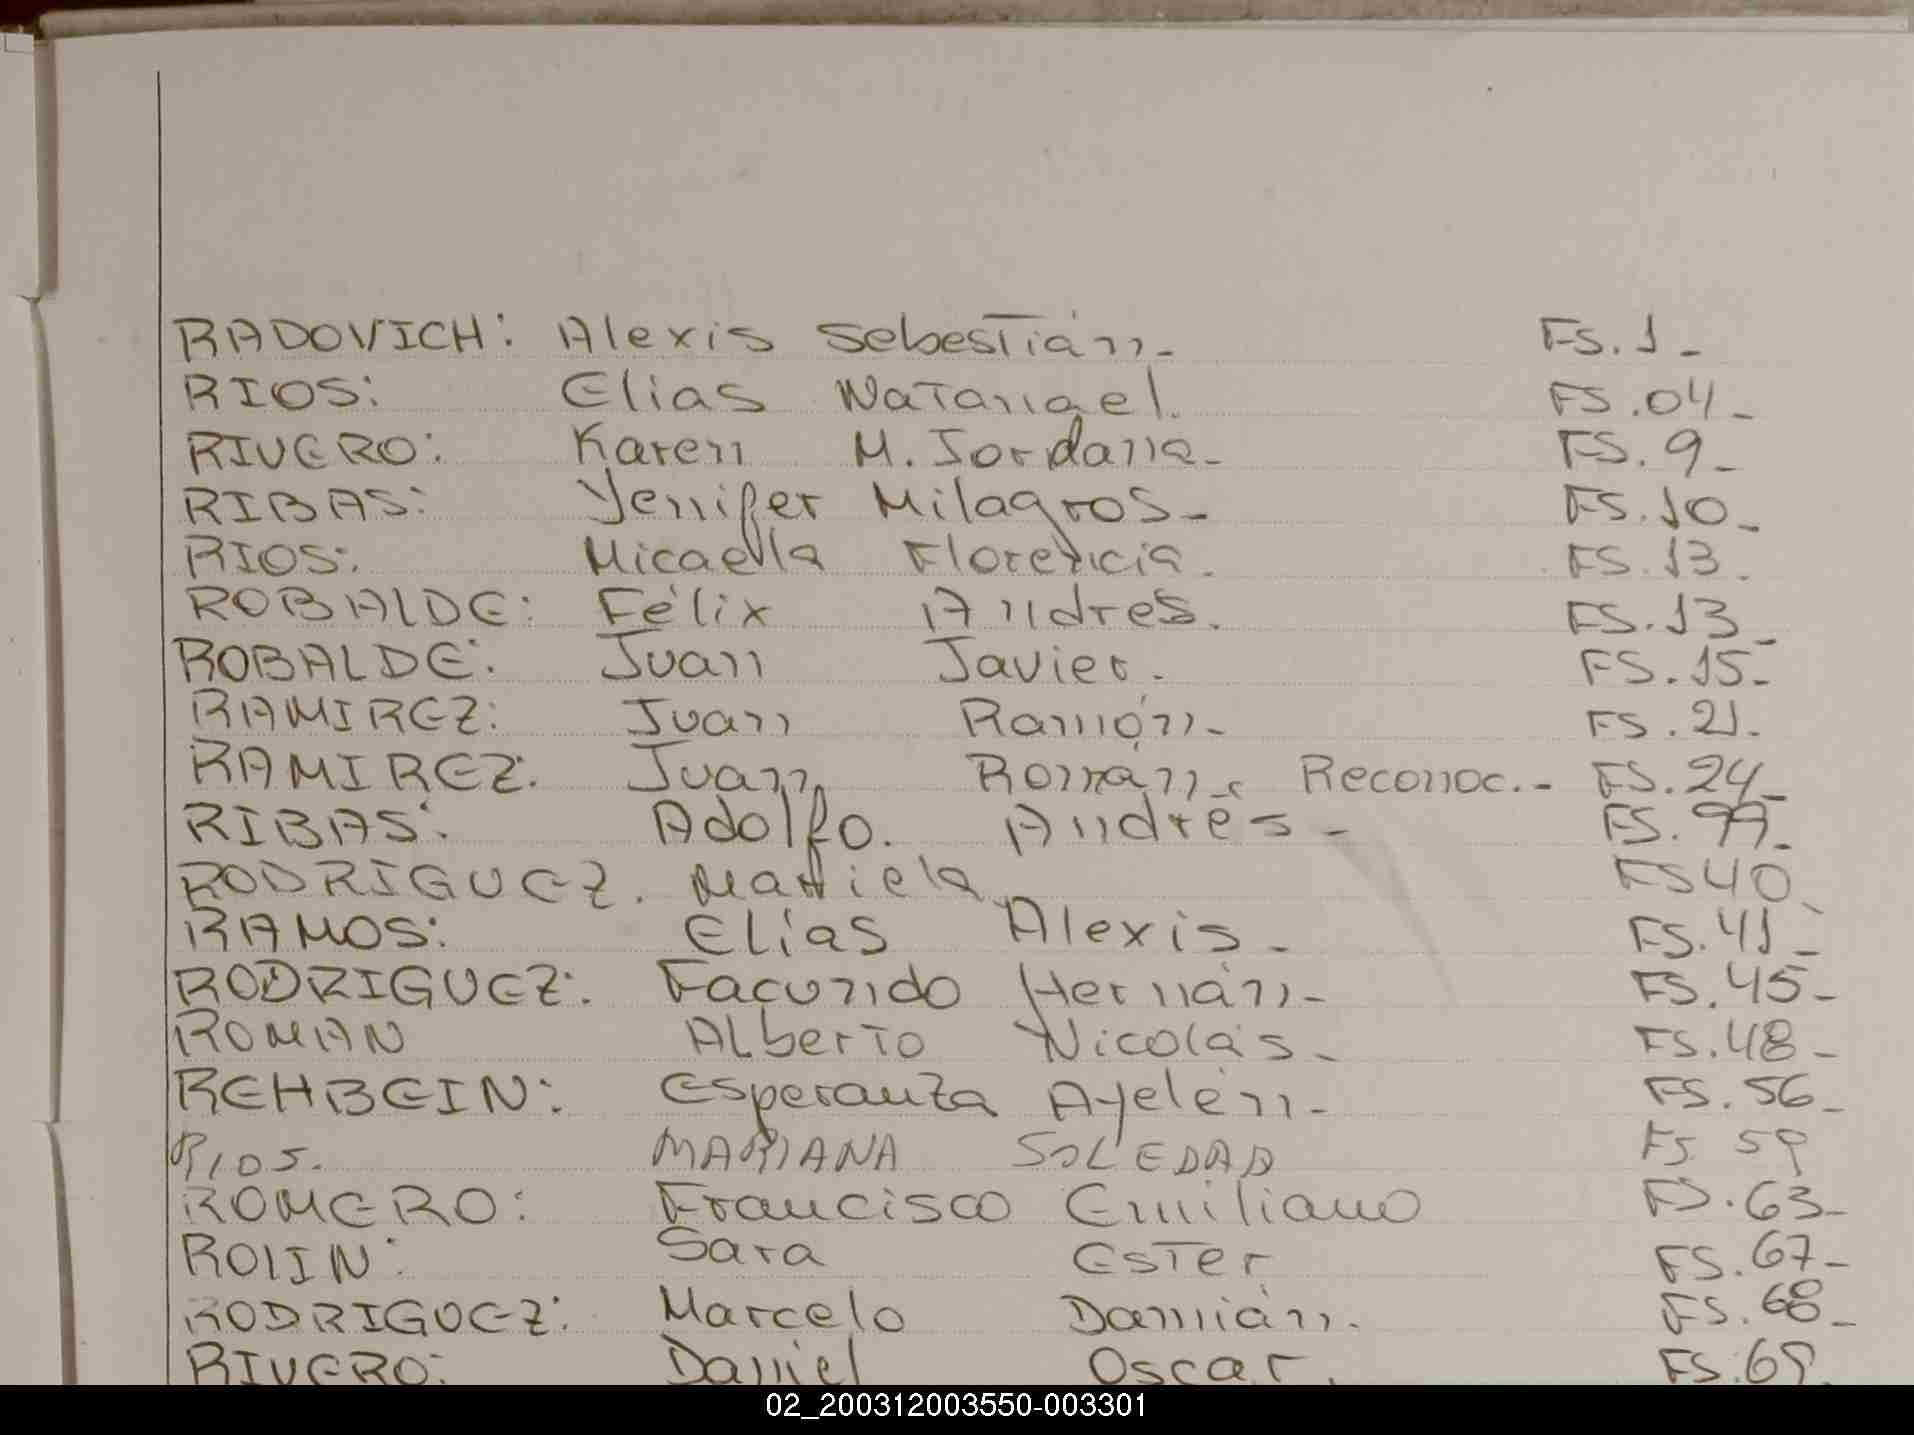 RADOVICH: Alexis Sebestián- FS. 1-
RIOS: Elias Natanael. FS. 04-
RIVERO: Karen M. Jordana- FS. 9-
RIBAS: Yennifer Milagros- FS. 10-
RIOS: Micaella Florencia. FS. 13.
ROBALDE: Félix Andres. FS. 13-
ROBALDE: Juan Javier. FS. 15-
RAMIREZ: Juan Ramón- FS. 21.
RAMIREZ: Juan Román- Reconoc.- FS. 24-
RIBAS: Adolfo. Andrés- FS.
RODRIGUEZ. Mariela FS 40
RAMOS: Elías Alexis. - FS. 41-
RODRIGUEZ: Facundo Hernán- FS. 45-
ROMAN Alberto Nicolás- FS. 48-
REHBEIN: Esperanza Ayelén- FS. 56-
RIOS. MARIANA SOLEDAD FS 59
ROMERO: Francisco Emiliano FS. 63-
ROLIN: Sara Ester FS. 67-
RODRIGUEZ: Marcelo Damián. FS. 68-
RIVERO: Daniel Oscar. FS. 69.
02_200312003550-003301